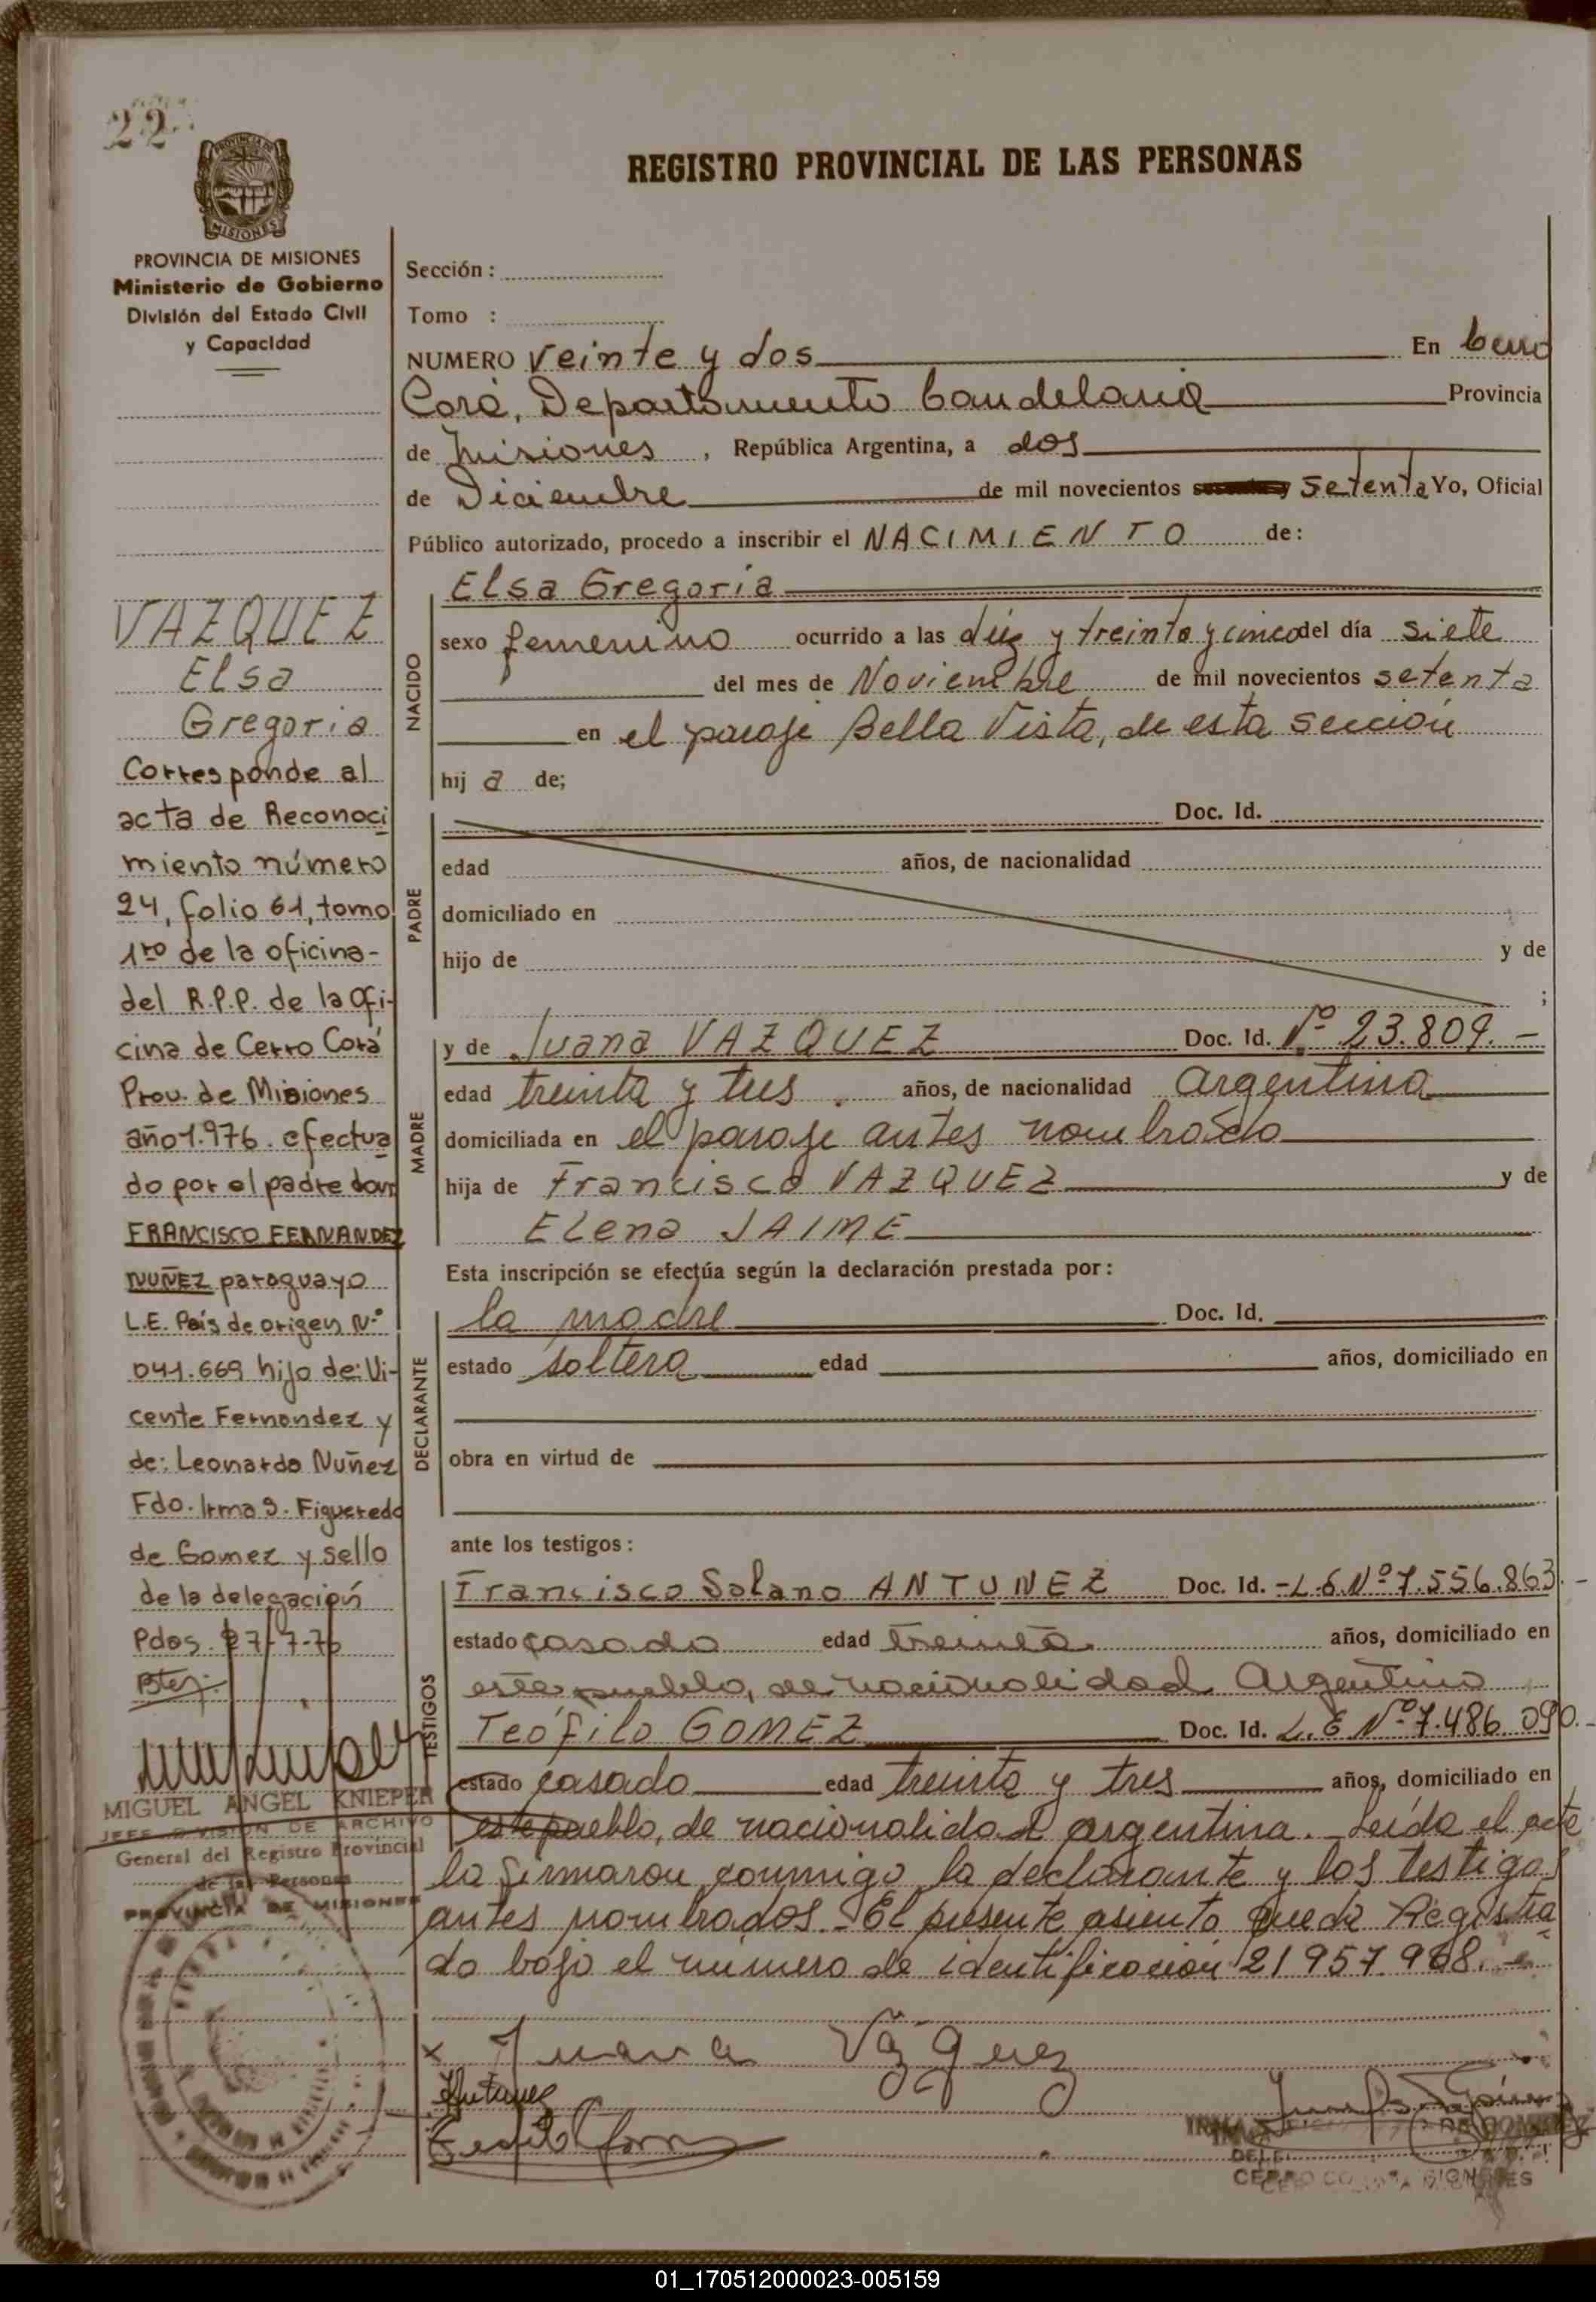 22
PROVINCIA DE
MISIONES
REGISTRO PROVINCIAL DE LAS PERSONAS
PROVINCIA DE MISIONES
Ministerio de Gobierno
División del Estado Civil
y Capacidad
VAZQUEZ
Elsa
Gregoria
Corresponde al
acta de Reconoci
miento número
24, folio 61, tomo
1ro de la oficina-
del R.P.P. de la Ofi-
cina de Cerro Corá
Prov. de Misiones
año 1.976. efectua
do por el padre don
FRANCISCO FERNANDEZ
NUÑEZ paraguayo
L.E. País de origen N°
041.669 hijo de: Vi-
cente Fernandez y
de: Leonarda Nuñez
Fdo. Irma S. Figueredo
de Gomez y sello
de la delegación
Pdas. 27-7-76
MIGUEL ANGEL KNIEPER
JEFE DIVISION DE ARCHIVO
General del Registro Provincial
de las Personas
PROVINCIA DE MISIONES
Sección :
Tomo :
NUMERO veinte y dos En Cerro
Corá, Departamento Candelaria Provincia
de Misiones , República Argentina, a dos
de Diciembre de mil novecientos setenta Yo, Oficial
Público autorizado, procedo a inscribir el NACIMIENTO de:
NACIDO
Elsa Gregoria
sexo femenino ocurrido a las diez y treinta y cinco del día siete
del mes de Noviembre de mil novecientos setenta
en el paraje Bella Vista, de esta sección
hij a de;
PADRE
Doc. Id.
edad años, de nacionalidad
domiciliado en
hijo de y de
;
MADRE
y de Juana VAZQUEZ Doc. Id. Nº 23.809.-
edad treinta y tres años, de nacionalidad argentina
domiciliada en el paraje antes nombrado
hija de Francisco VAZQUEZ y de
Elena JAIME
Esta inscripción se efectúa según la declaración prestada por:
DECLARANTE
la madre Doc. Id.
estado soltera edad años, domiciliado en
obra en virtud de
ante los testigos:
TESTIGOS
Francisco Solano ANTUNEZ Doc. Id. -L.E. Nº 7.556.863.-
estado casado edad treinta años, domiciliado en
este pueblo, de nacionalidad Argentino
Teófilo GOMEZ Doc. Id. L.E Nº 7.486.090.-
estado casado edad treinta y tres años, domiciliado en
este pueblo, de nacionalidad argentina. Leída el acta
la firmaron conmigo la declarante y los testigos
antes nombrados.-El presente asiento queda Registra
do bajo el número de identificación 21957.968.-
x Juana Vázquez
Antunez
CERRO CORA MISIONES
01_170512000023-005159